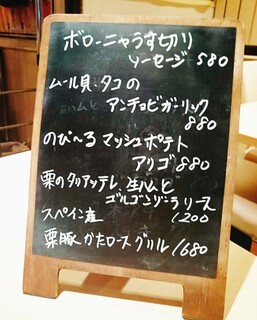 ボローニャうす切り
ソーセージ 580
ムール貝・タコの
アンチョビガーリック
880
のび〜るマッシュポテト
アリゴ 880
栗のタリアッテレ 生ハムと
ゴルゴンゾーラソース
1200
スペイン産
栗豚 かたロース グリル 1680